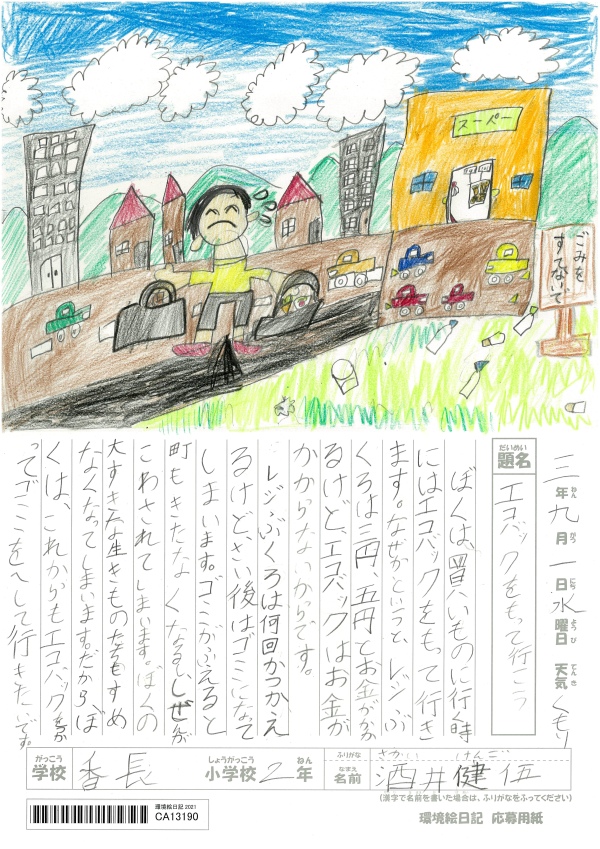 スーパー
ごみを
すてないで
三年九月一日水曜日 天気くもり
ねん がつ にち ようび てんき
だいめい
題名
エコバックをもって行こう
ぼくは、買いものに行く時
にはエコバックをもって行き
ます。なぜかというと、レジぶ
くろは三円、五円とお金がかか
るけど、エコバックはお金が
かからないからです。
レジぶくろは何回かつかえ
るけど、さい後はゴミになって
しまいます。ゴミがふえると
町もきたなくなるししぜんが
こわされてしまいます。ぼくの
大すきな生きものたちもすめ
なくなってしまいます。だから、ぼ
くは、これからもエコバックを
ってゴミをへして行きたいです。
がっこう
学校
香長
しょうがっこう
小学校
2
ねん
年
ふりがな
さかい けんご
なまえ
名前
酒井健伍
(漢字で名前を書いた場合は、ふりがなをふってください)
環境絵日記 2021
CA13190
環境絵日記 応募用紙